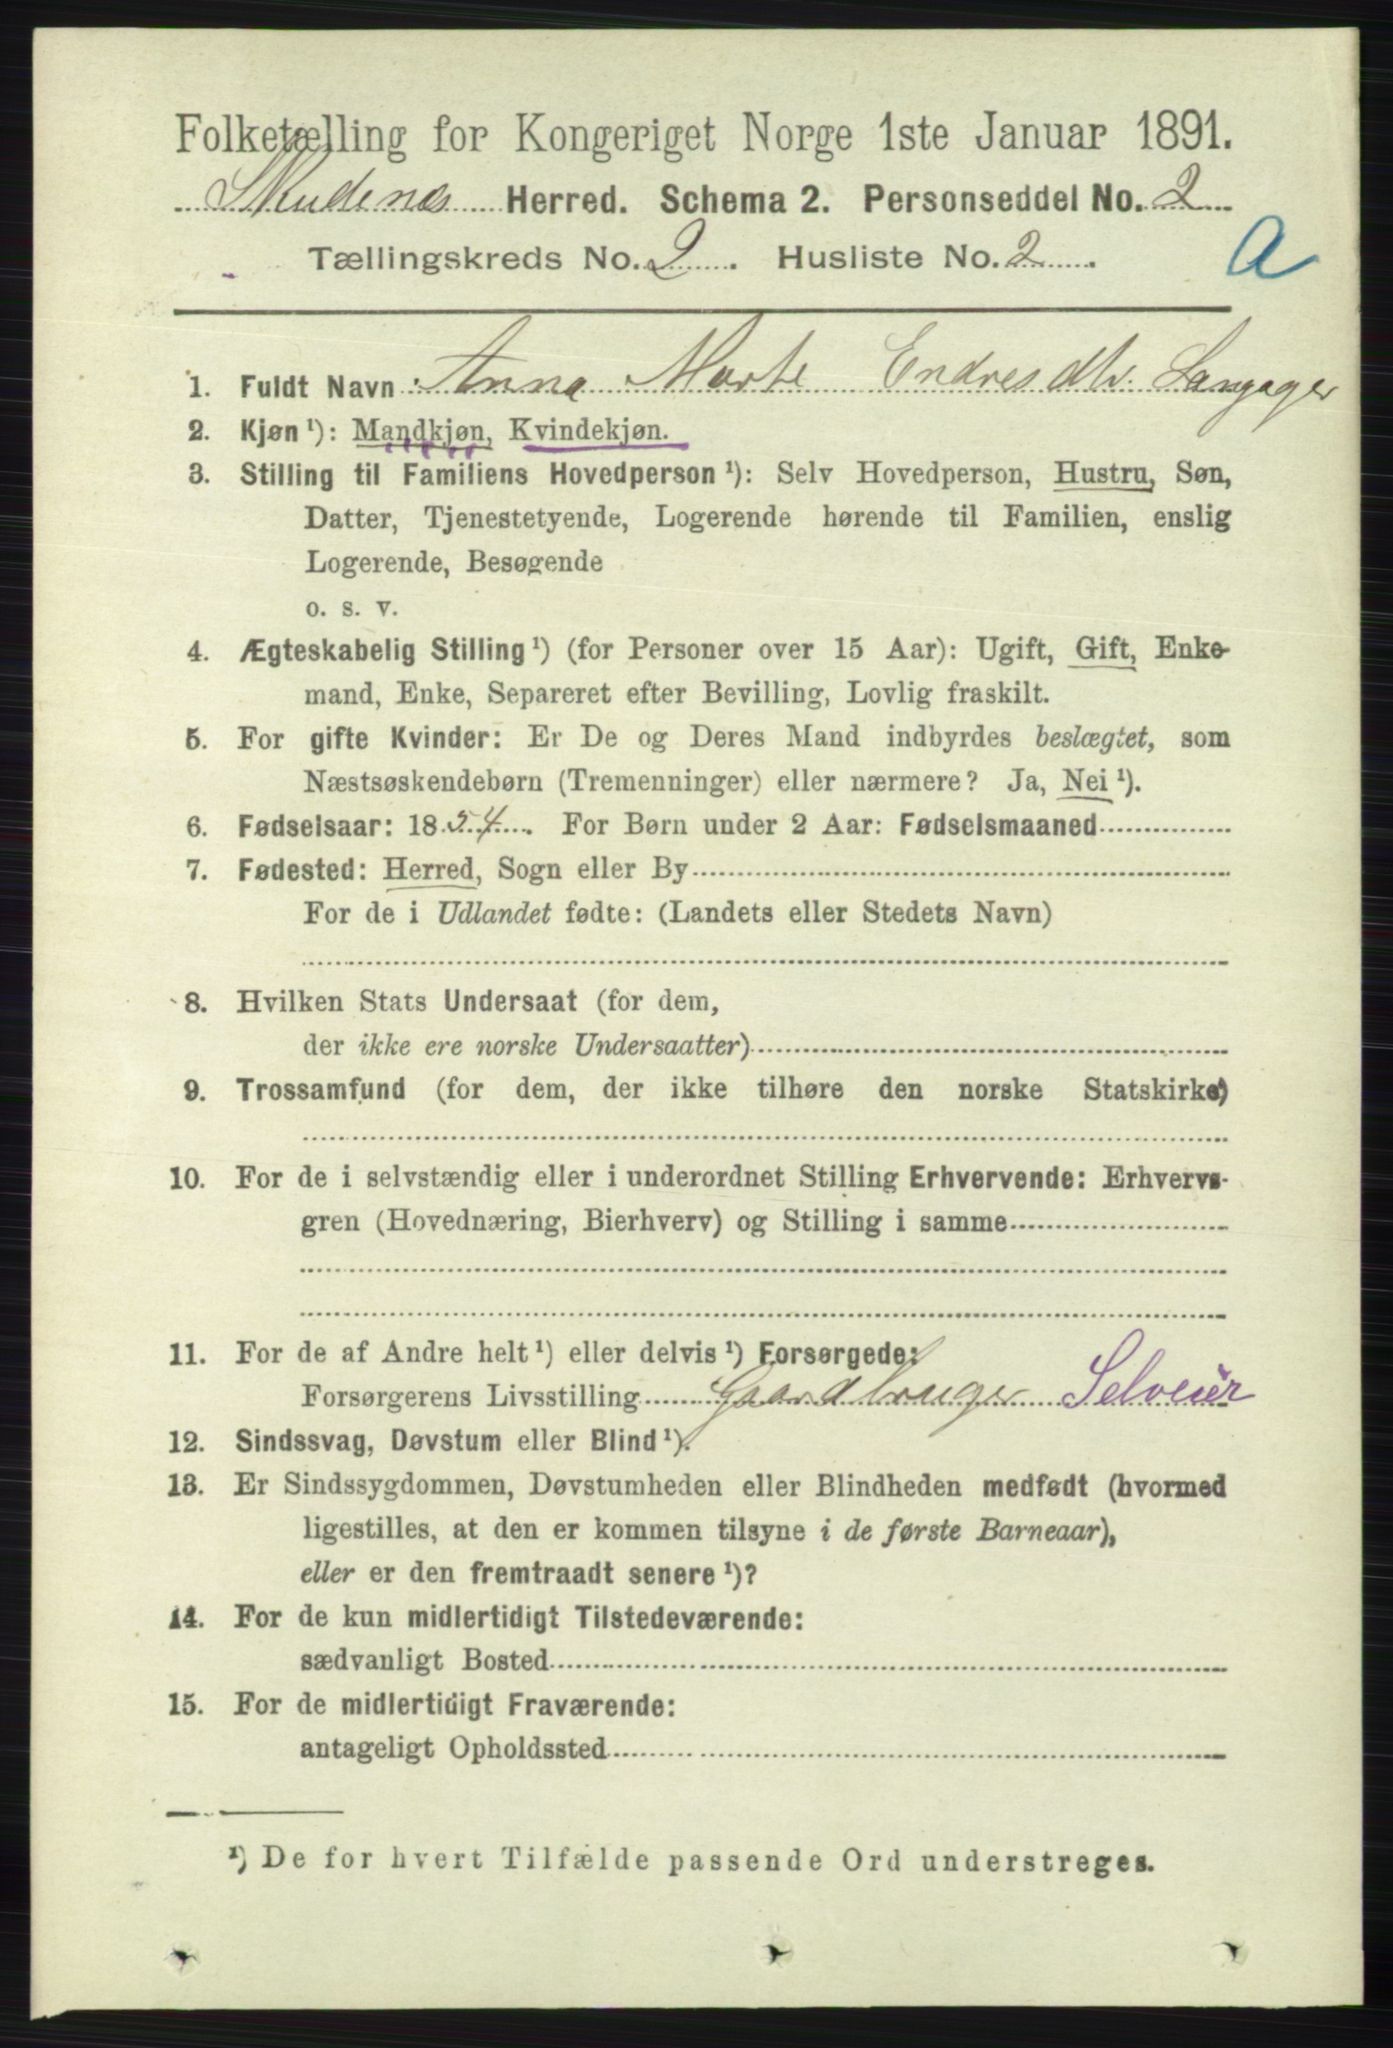 Folketælling for Kongeriget Norge 1ste Januar 1891.
Skudenæs Herred. Schema 2. Personseddel No. 2
Tællingskreds No. 2. Husliste No. 2.
a
1. Fuldt Navn Anna Marte Endresdtr. Langager
2. Kjøn ¹): Mandkjøn, Kvindekjøn.
3. Stilling til Familiens Hovedperson ¹): Selv Hovedperson, Hustru, Søn,
Datter, Tjenestetyende, Logerende hørende til Familien, enslig
Logerende, Besøgende
o. s. v.
4. Ægteskabelig Stilling ¹) (for Personer over 15 Aar): Ugift, Gift, Enke-
mand, Enke, Separeret efter Bevilling, Lovlig fraskilt.
5. For gifte Kvinder: Er De og Deres Mand indbyrdes beslægtet, som
Næstsøskendebørn (Tremenninger) eller nærmere? Ja, Nei ¹).
6. Fødselsaar: 1854. For Børn under 2 Aar: Fødselsmaaned
7. Fødested: Herred, Sogn eller By
For de i Udlandet fødte: (Landets eller Stedets Navn)
8. Hvilken Stats Undersaat (for dem,
der ikke ere norske Undersaatter)
9. Trossamfund (for dem, der ikke tilhøre den norske Statskirke)
10. For de i selvstændig eller i underordnet Stilling Erhvervende: Erhvervs-
gren (Hovednæring, Bierhverv) og Stilling i samme
11. For de af Andre helt ¹) eller delvis ¹) Forsørgede:
Forsørgerens Livsstilling Gaardbruger Selveier
12. Sindssvag, Døvstum eller Blind ¹).
13. Er Sindssygdommen, Døvstumheden eller Blindheden medfødt (hvormed
ligestilles, at den er kommen tilsyne i de første Barneaar),
eller er den fremtraadt senere ¹)?
14. For de kun midlertidigt Tilstedeværende:
sædvanligt Bosted
15. For de midlertidigt Fraværende:
antageligt Opholdssted
¹) De for hvert Tilfælde passende Ord understreges.